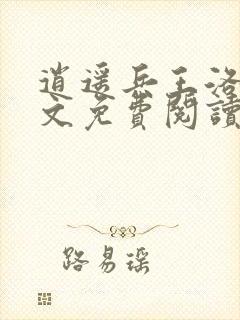 逍遥兵王洛
文免費閱讀
路易瑶